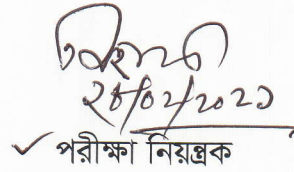 ২৮/০২/২০২১
পরীক্ষা নিয়ন্ত্রক